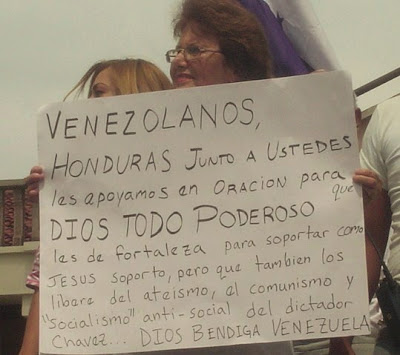 VENEZOLANOS,
HONDURAS JUNTO A USTEDES
les apoyamos en ORACION para que
DIOS TODO PODEROSO
les de fortaleza para soportar como
JESUS soporto, pero que tambien los
libere del ateismo, el comunismo y
"socialismo" anti-social del dictador
Chavez... DIOS BENDIGA VENEZUELA